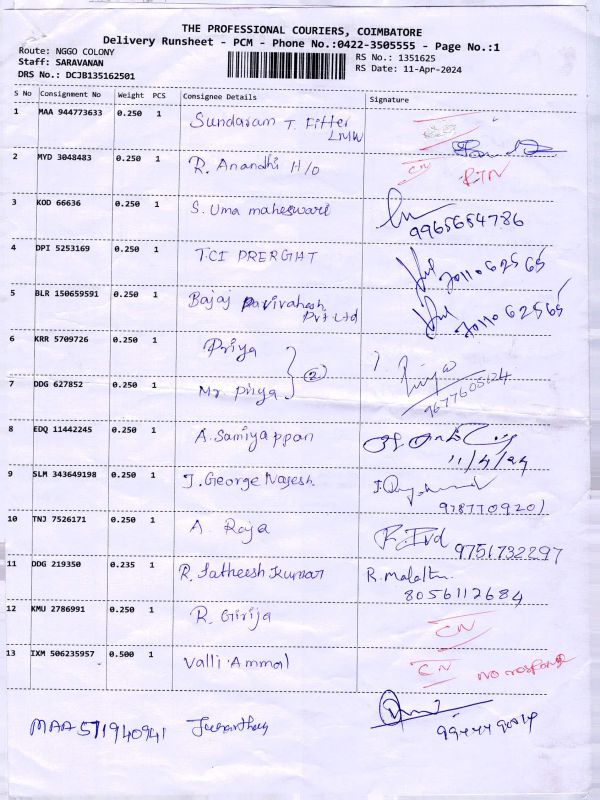 THE PROFESSIONAL COURIERS, COIMBATORE
Delivery Runsheet - PCM - Phone No.:0422-3505555 - Page No.:1
Route: NGGO COLONY
RS No.: 1351625
Staff: SARAVANAN
RS Date: 11-Apr-2024
DRS No.: DCJB135162501
S No Consignment No Weight PCS Consignee Details Signature
1 MAA 944773633 0.250 1 Sundaram T. Fitter
LMW
2 MYD 3048483 0.250 1 R. Anandhi H/o CN RTN
3 KOD 66636 0.250 1 S. Uma maheswari
9965654786
4 DPI 5253169 0.250 1 TCI
7011062565
5 BLR 150659591 0.250 1 Bajaj
Pvt Ltd
7011062565
6 KRR 5709726 0.250 1 Priya
2 Priya
7 DDG 627852 0.250 1 Mr. Priya
9677605624
8 EDQ 11442245 0.250 1 A. Samiyappan
11/4/24
9 SLM 343649198 0.250 1 J. George Rajesh
9787709201
10 TNJ 7526171 0.250 1 A. Raja
9751732297
11 DDG 219350 0.235 1 R. Satheesh Kumar R. Malathi
8056112684
12 KMU 2786991 0.250 1 R. Girija CN
13 IXM 506235957 0.500 1 Valli Ammal CN No response
MAA 571940941